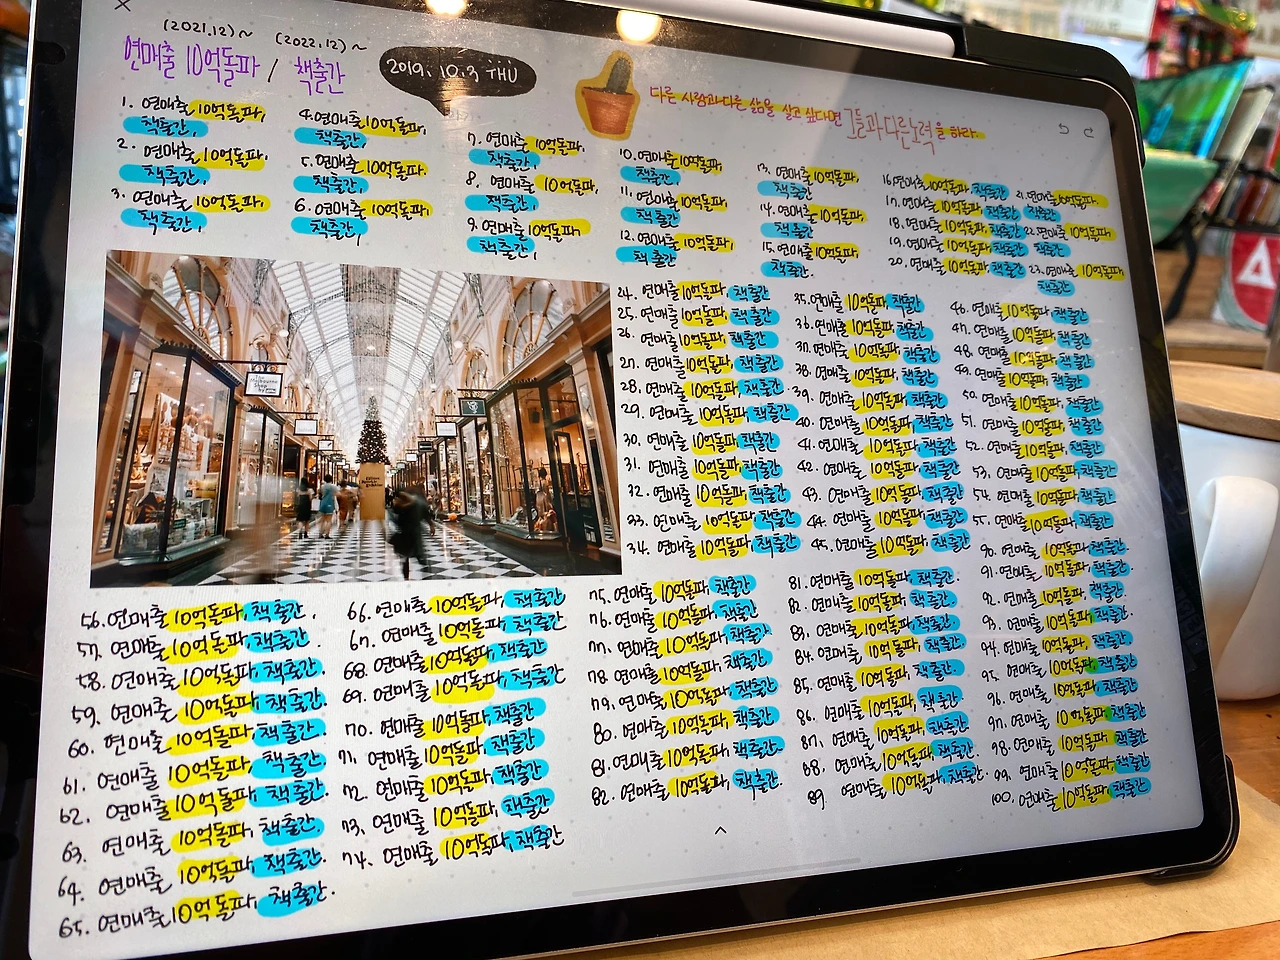 (2021.12)~ (2022.12)~
연매출 10억돌파 / 책출간
2019. 10. 3 THU
다른 사람과 다른 삶을 살고 싶다면 그들과 다른 노력을 하라.
1. 연매출 10억돌파,
책출간,
2. 연매출 10억돌파,
책출간,
3. 연매출 10억돌파,
책출간,
4. 연매출 10억돌파,
책출간,
5. 연매출 10억돌파,
책출간,
6. 연매출 10억돌파,
책출간,
7. 연매출 10억돌파,
책출간,
8. 연매출 10억돌파,
책출간,
9. 연매출 10억돌파,
책출간,
10. 연매출 10억돌파,
책출간
11. 연매출 10억돌파,
책출간
12. 연매출 10억돌파,
책출간
13. 연매출 10억돌파,
책출간
14. 연매출 10억돌파,
책출간
15. 연매출 10억돌파,
책출간.
16. 연매출 10억돌파, 책출간
17. 연매출 10억돌파, 책출간
18. 연매출 10억돌파, 책출간
19. 연매출 10억돌파, 책출간
20. 연매출 10억돌파, 책출간
21. 연매출 10억돌파,
책출간
22. 연매출 10억돌파,
책출간
23. 연매출 10억돌파,
책출간
The Melbourne Shop
24. 연매출 10억돌파, 책출간
25. 연매출 10억돌파, 책출간
26. 연매출 10억돌파, 책출간
27. 연매출 10억돌파, 책출간
28. 연매출 10억돌파, 책출간
29. 연매출 10억돌파, 책출간
30. 연매출 10억돌파, 책출간
31. 연매출 10억돌파, 책출간
32. 연매출 10억돌파, 책출간
33. 연매출 10억돌파, 책출간
34. 연매출 10억돌파, 책출간
35. 연매출 10억돌파, 책출간
36. 연매출 10억돌파, 책출간
37. 연매출 10억돌파, 책출간
38. 연매출 10억돌파, 책출간
39. 연매출 10억돌파, 책출간
40. 연매출 10억돌파, 책출간
41. 연매출 10억돌파, 책출간
42. 연매출 10억돌파, 책출간
43. 연매출 10억돌파, 책출간
44. 연매출 10억돌파, 책출간
45. 연매출 10억돌파, 책출간
46. 연매출 10억돌파, 책출간
47. 연매출 10억돌파, 책출간
48. 연매출 10억돌파, 책출간
49. 연매출 10억돌파, 책출간
50. 연매출 10억돌파, 책출간
51. 연매출 10억돌파, 책출간
52. 연매출 10억돌파, 책출간
53. 연매출 10억돌파, 책출간
54. 연매출 10억돌파, 책출간
55. 연매출 10억돌파, 책출간
56. 연매출 10억돌파, 책출간.
57. 연매출 10억돌파, 책출간.
58. 연매출 10억돌파, 책출간.
59. 연매출 10억돌파, 책출간.
60. 연매출 10억돌파, 책출간.
61. 연매출 10억돌파, 책출간
62. 연매출 10억돌파, 책출간.
63. 연매출 10억돌파, 책출간.
64. 연매출 10억돌파, 책출간.
65. 연매출 10억돌파, 책출간.
66. 연매출 10억돌파, 책출간
67. 연매출 10억돌파, 책출간
68. 연매출 10억돌파, 책출간
69. 연매출 10억돌파, 책출간
70. 연매출 10억돌파, 책출간
71. 연매출 10억돌파, 책출간
72. 연매출 10억돌파, 책출간
73. 연매출 10억돌파, 책출간
74. 연매출 10억돌파, 책출간
75. 연매출 10억돌파, 책출간
76. 연매출 10억돌파, 책출간
77. 연매출 10억돌파, 책출간
78. 연매출 10억돌파, 책출간
79. 연매출 10억돌파, 책출간
80. 연매출 10억돌파, 책출간
81. 연매출 10억돌파, 책출간
82. 연매출 10억돌파, 책출간
81. 연매출 10억돌파, 책출간.
82. 연매출 10억돌파, 책출간
83. 연매출 10억돌파, 책출간
84. 연매출 10억돌파, 책출간
85. 연매출 10억돌파, 책출간
86. 연매출 10억돌파, 책출간
87. 연매출 10억돌파, 책출간
68. 연매출 10억돌파, 책출간.
89. 연매출 10억돌파, 책출간.
90. 연매출 10억돌파, 책출간.
91. 연매출 10억돌파, 책출간.
92. 연매출 10억돌파, 책출간
93. 연매출 10억돌파, 책출간
94. 연매출 10억돌파, 책출간
95. 연매출 10억돌파, 책출간
96. 연매출 10억돌파, 책출간
97. 연매출 10억돌파, 책출간
98. 연매출 10억돌파, 책출간
99. 연매출 10억돌파, 책출간
100. 연매출 10억돌파, 책출간